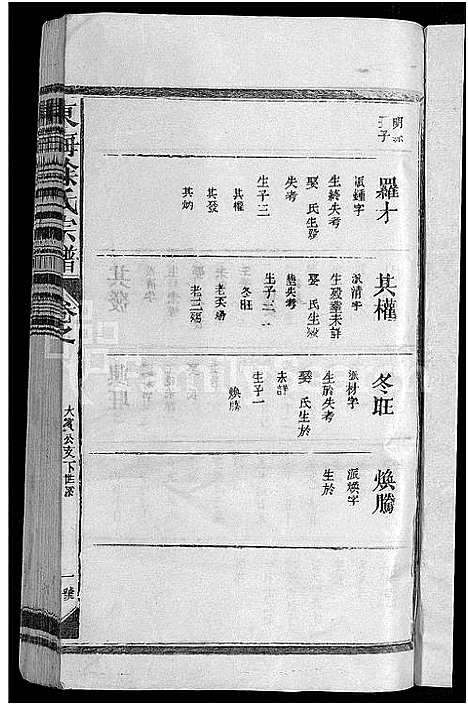 明球
子
羅才
派鍾字
生終失考
娶 氏生歿
失考
生子三
其權
其發
其炳
其權
派清字
生歿塟未詳
娶 氏生歿
塟失考
生子三
冬旺
老天殤
老三殤
冬旺
派材字
生於失考
娶 氏生於
未詳
生子一
煥騰
煥騰
派煥字
生於
東海徐氏宗譜
卷之
大 公支下世系
一